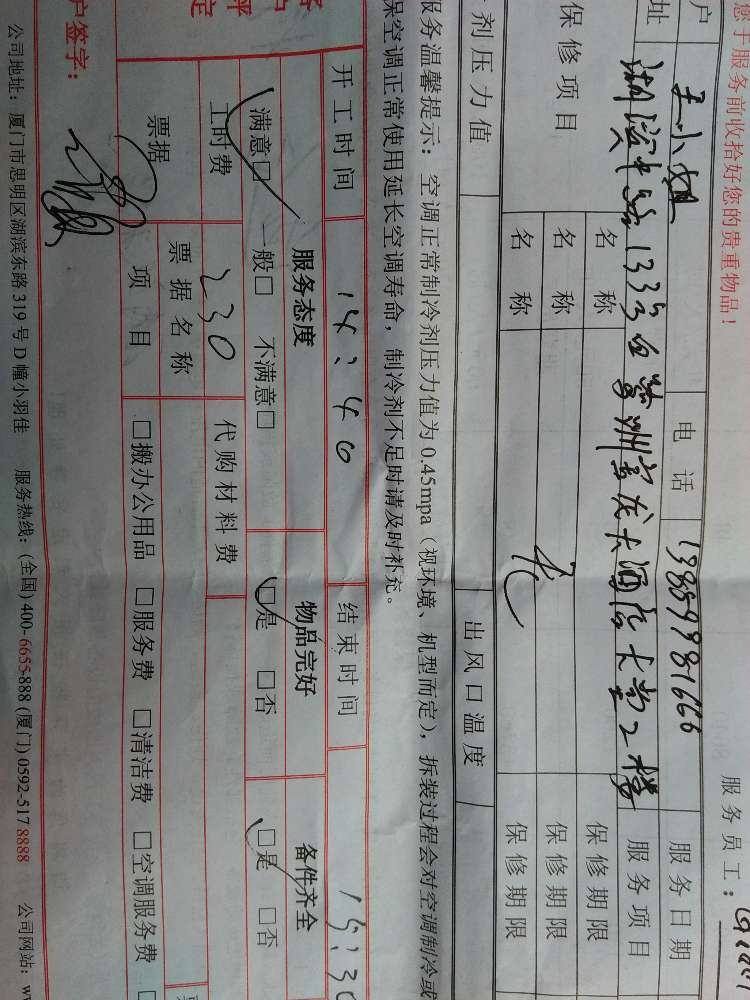 您于服务前收拾好您的贵重物品！
服务员工：
户 王小姐 电话 13859981666 服务日期
址 湖滨中路133号 大酒店大堂2楼 服务项目
保修项目 名称 保修期限
名称 无 保修期限
名称 保修期限
剂压力值 出风口温度
服务温馨提示：空调正常制冷剂压力值为0.45mpa（视环境、机型而定），拆装过程会对空调制冷或
保空调正常使用延长空调寿命，制冷剂不足时请及时补充。
开工时间 14:40 结束时间 15:30
服务态度 物品完好 备件齐全
满意□ 一般□ 不满意□ □是 □否 □是 □否
评定
工时费 230 代购材料费
票据 票据名称
项目 □搬办公用品 □服务费 □清洁费 □空调服务费 □
户签字：
公司地址：厦门市思明区湖滨东路319号D幢小羽佳 服务热线：(全国) 400-6655-888 (厦门) 0592-517 8888 公司网站：w